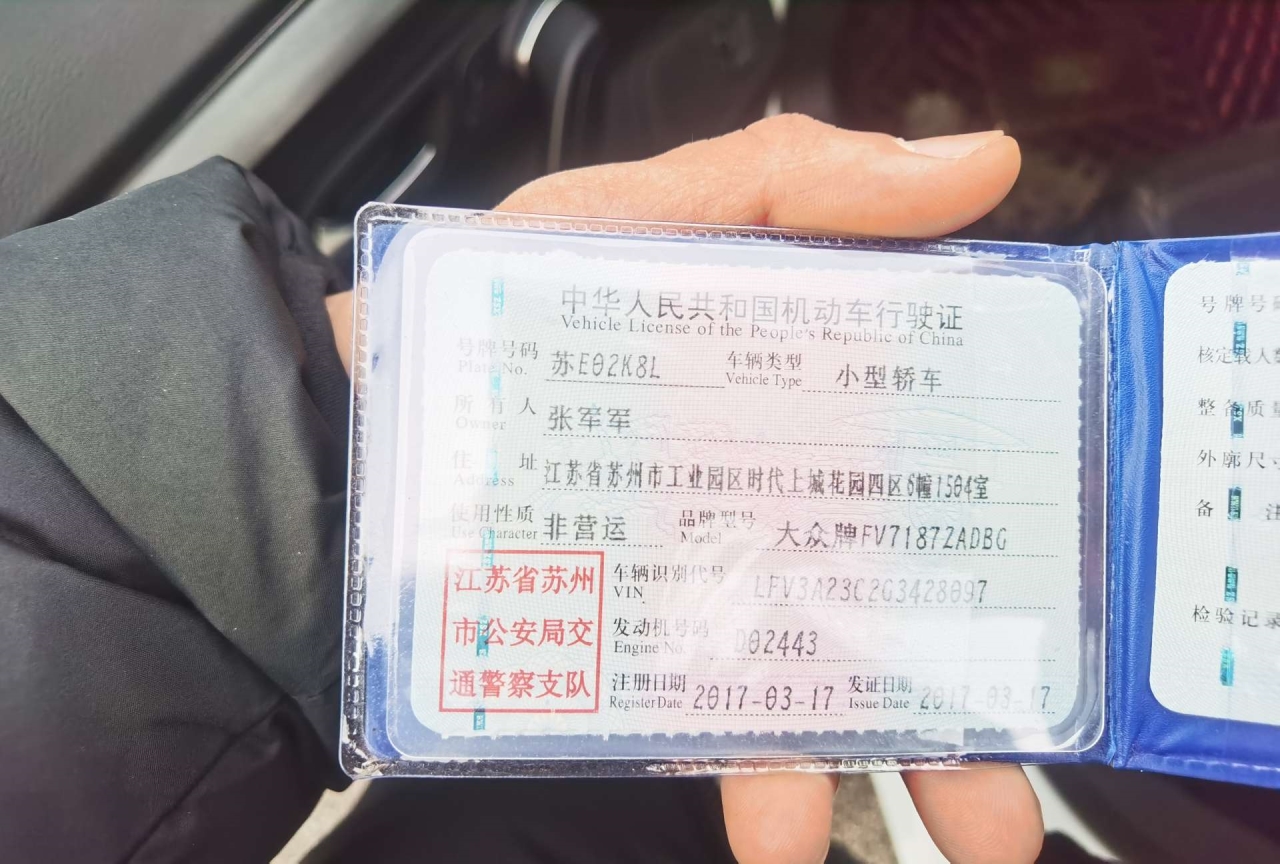 中华人民共和国机动车行驶证
Vehicle License of the People's Republic of China
号牌号码 苏E02K8L 车辆类型 小型轿车
Plate No. Vehicle Type
所有人 张军军
Owner
住址 江苏省苏州市工业园区时代上城花园四区6幢1504室
Address
使用性质 非营运 品牌型号 大众牌FV7187ZADBG
Use Character Model
江苏省苏州
市公安局交
通警察支队
车辆识别代号 LFV3A23C2G3428097
VIN
发动机号码 D02443
Engine No.
注册日期 2017-03-17 发证日期 2017-03-17
Register Date Issue Date
号牌号
核定载人
整备质量
外廓尺寸
备 注
检验记录